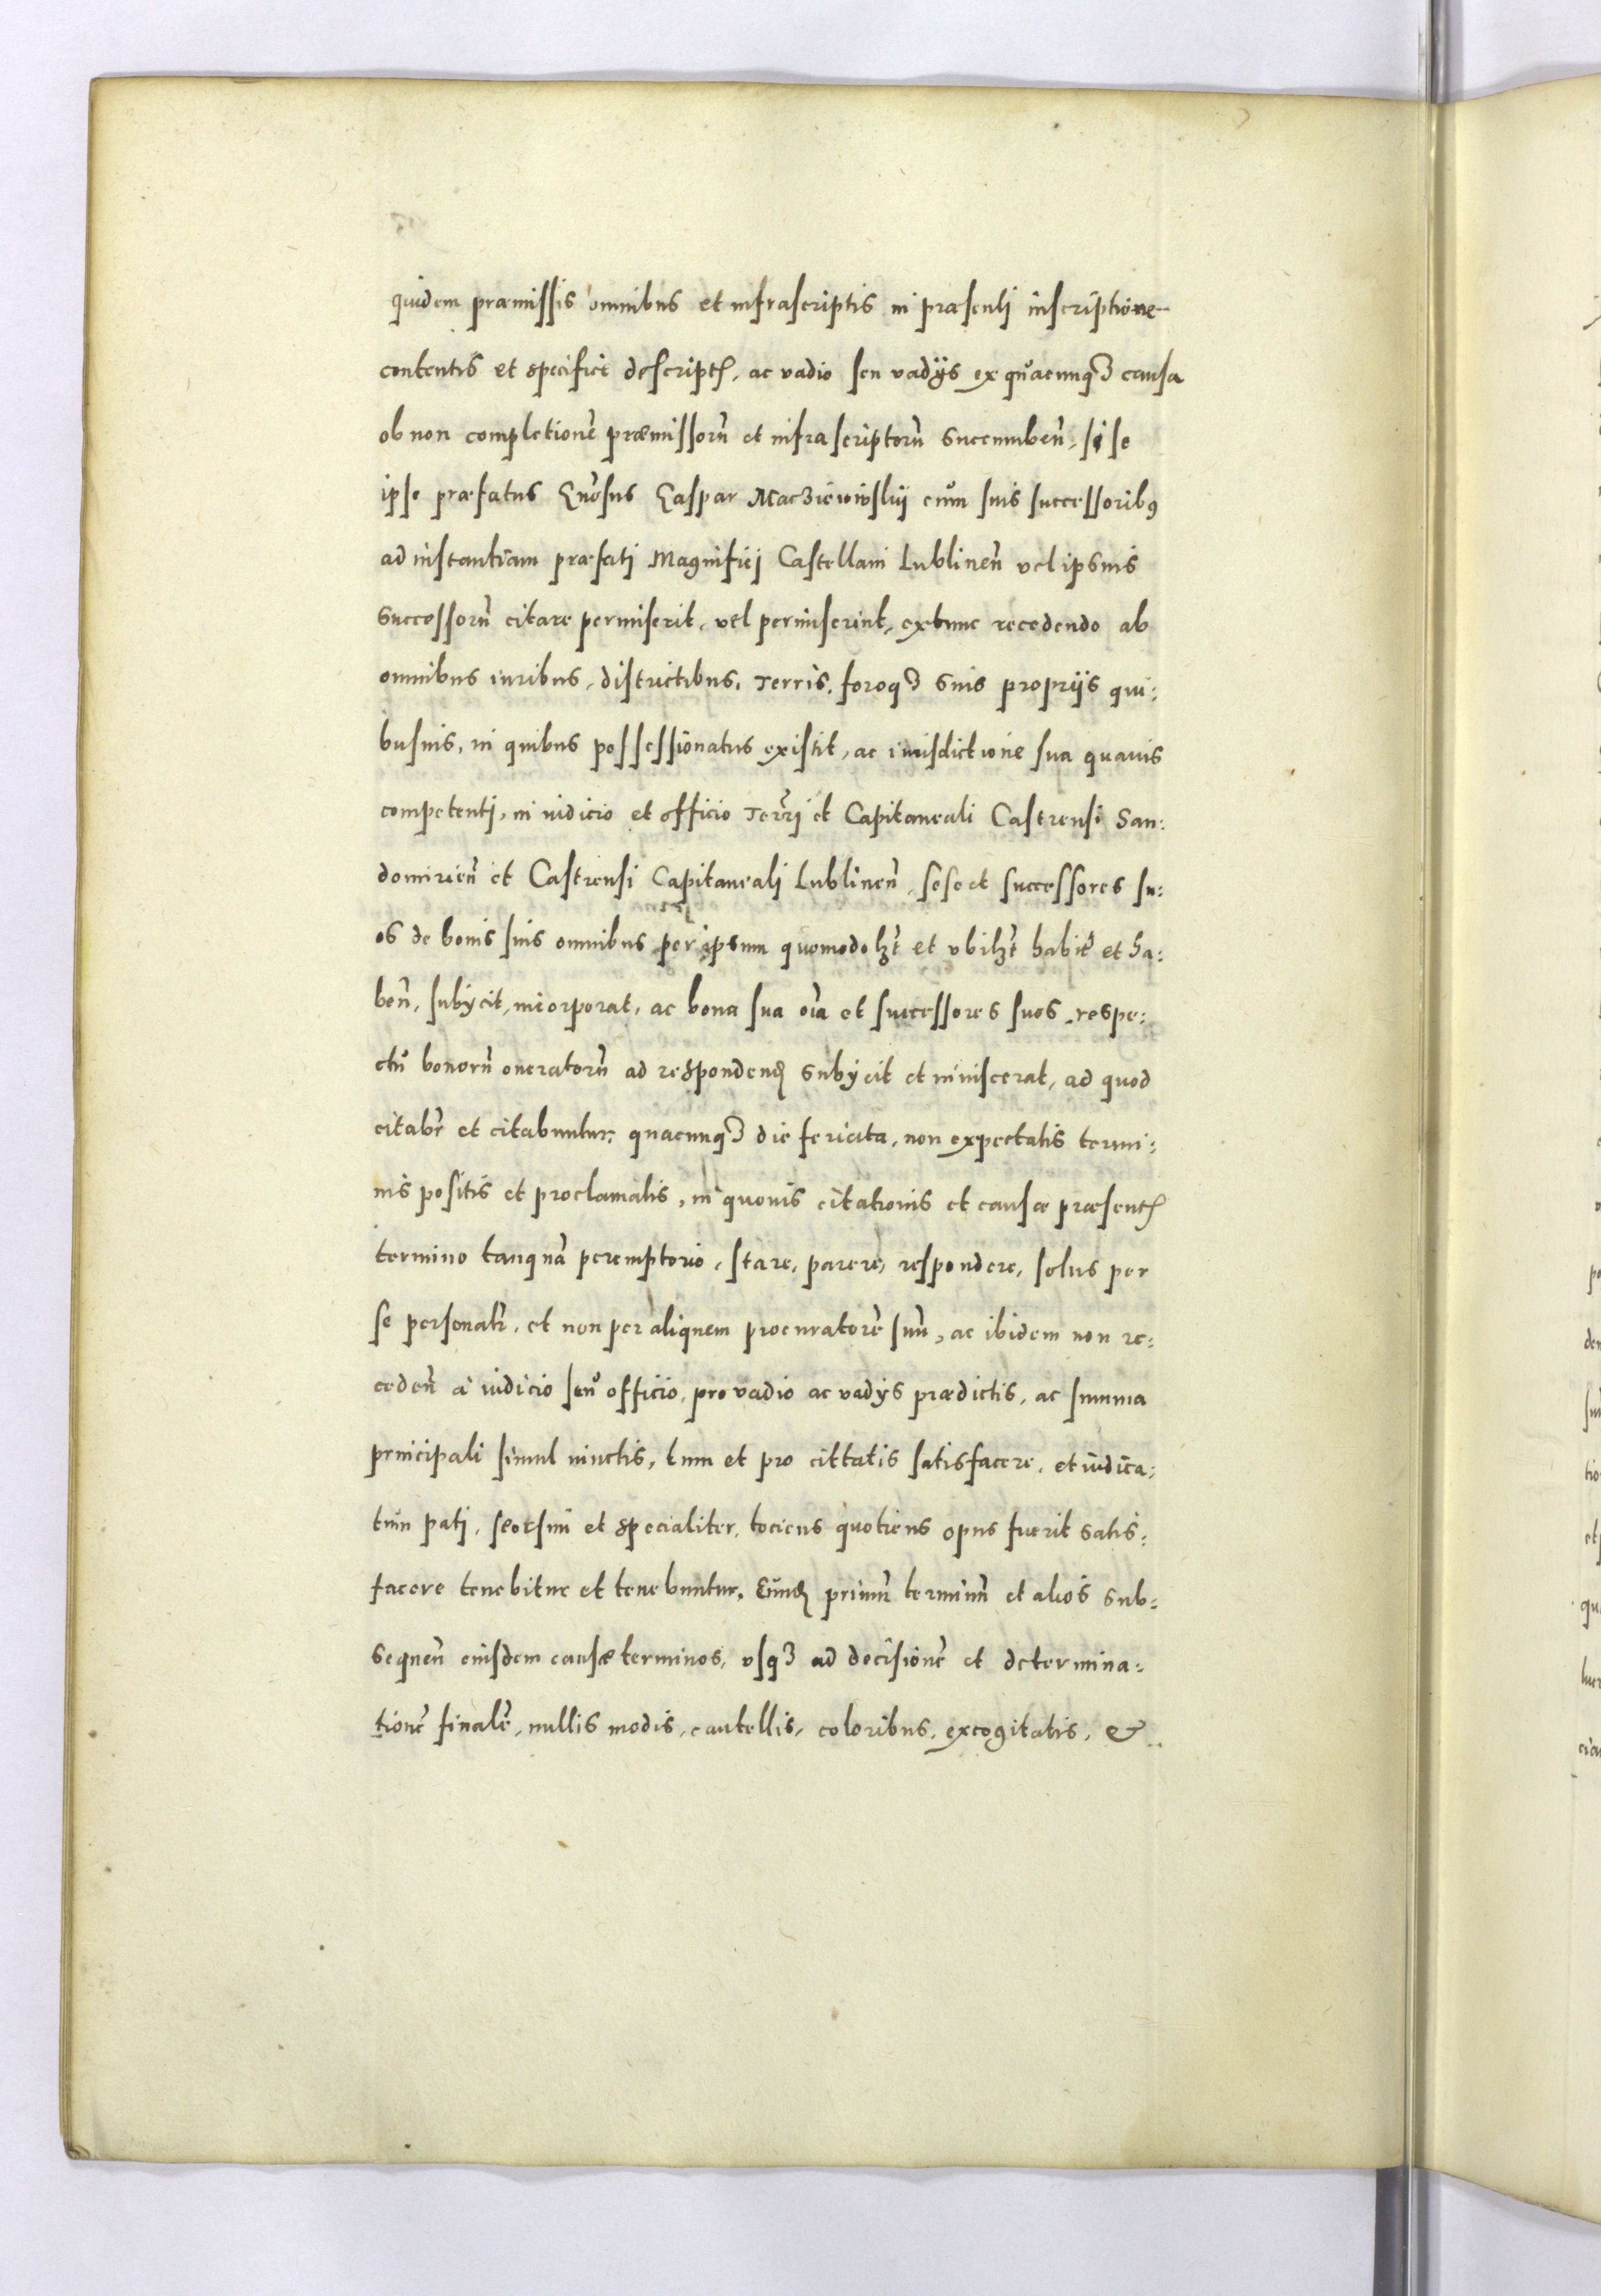 quidem præmissis omnibus et infrascriptis in præsentj inscriptione
contentis et specifice descript, ac vadio seu vadÿs ex quacunqꝫ causa
ob non completionē præmissorū et infrascriptorū succumbeñ, si se
ipse præfatus Gñosus Gaspar Macziewiwskÿ cum suis successoribꝯ
ad instantiam præfatj Magnificj Castellani Lublineñ vel ipsius
successorū citare permiserit, vel permiserint, extunc recedendo ab
omnibus iuribus, districtibus, Terris, foroqꝫ suis proprÿs qui:
busuis, in quibus possessionatus existit, ac iurisdictione sua quauis
competentj, in iudicio et officio Terrj et Capitaneali Castrensi San:
domirieñ et Castrensi Capitanealj Lublineñ, sese et successores su:
os de bonis suis omnibus per ipsum quomodolꝫt et vbilꝫt habit̃ et ha:
beñ, subÿcit, incorporat, ac bona sua oia et successores suos, respe:
ctu bonorū oneratorū ad respondend subÿcit et inuiscerat, ad quod
citabr̃ et citabuntur, quacunqꝫ die feriata, non expectatis termi:
nis positis et proclamatis, in quouis citationis et causæ præsent
termino tanquā peremptorio, stare, parere, respondere, solus per
se personalr̃, et non per aliquem procuratorē suū, ac ibidem non re:
cedeñ a iudicio seu officio, pro vadio ac vadÿs prædictis, ac summa
principali simul iunctis, tum et pro cittatis satisfacere, et iudica:
tum patj, seorsim et specialiter, tociens quotiens opus fuerit satis:
facere tenebitur et tenebuntur. Eund primū terminū et alios sub:
sequeñ eiusdem causæ terminos, vsqꝫ ad decisionē et determina:
tionē finalē, nullis modis, cautellis, coloribus, excogitatis, &